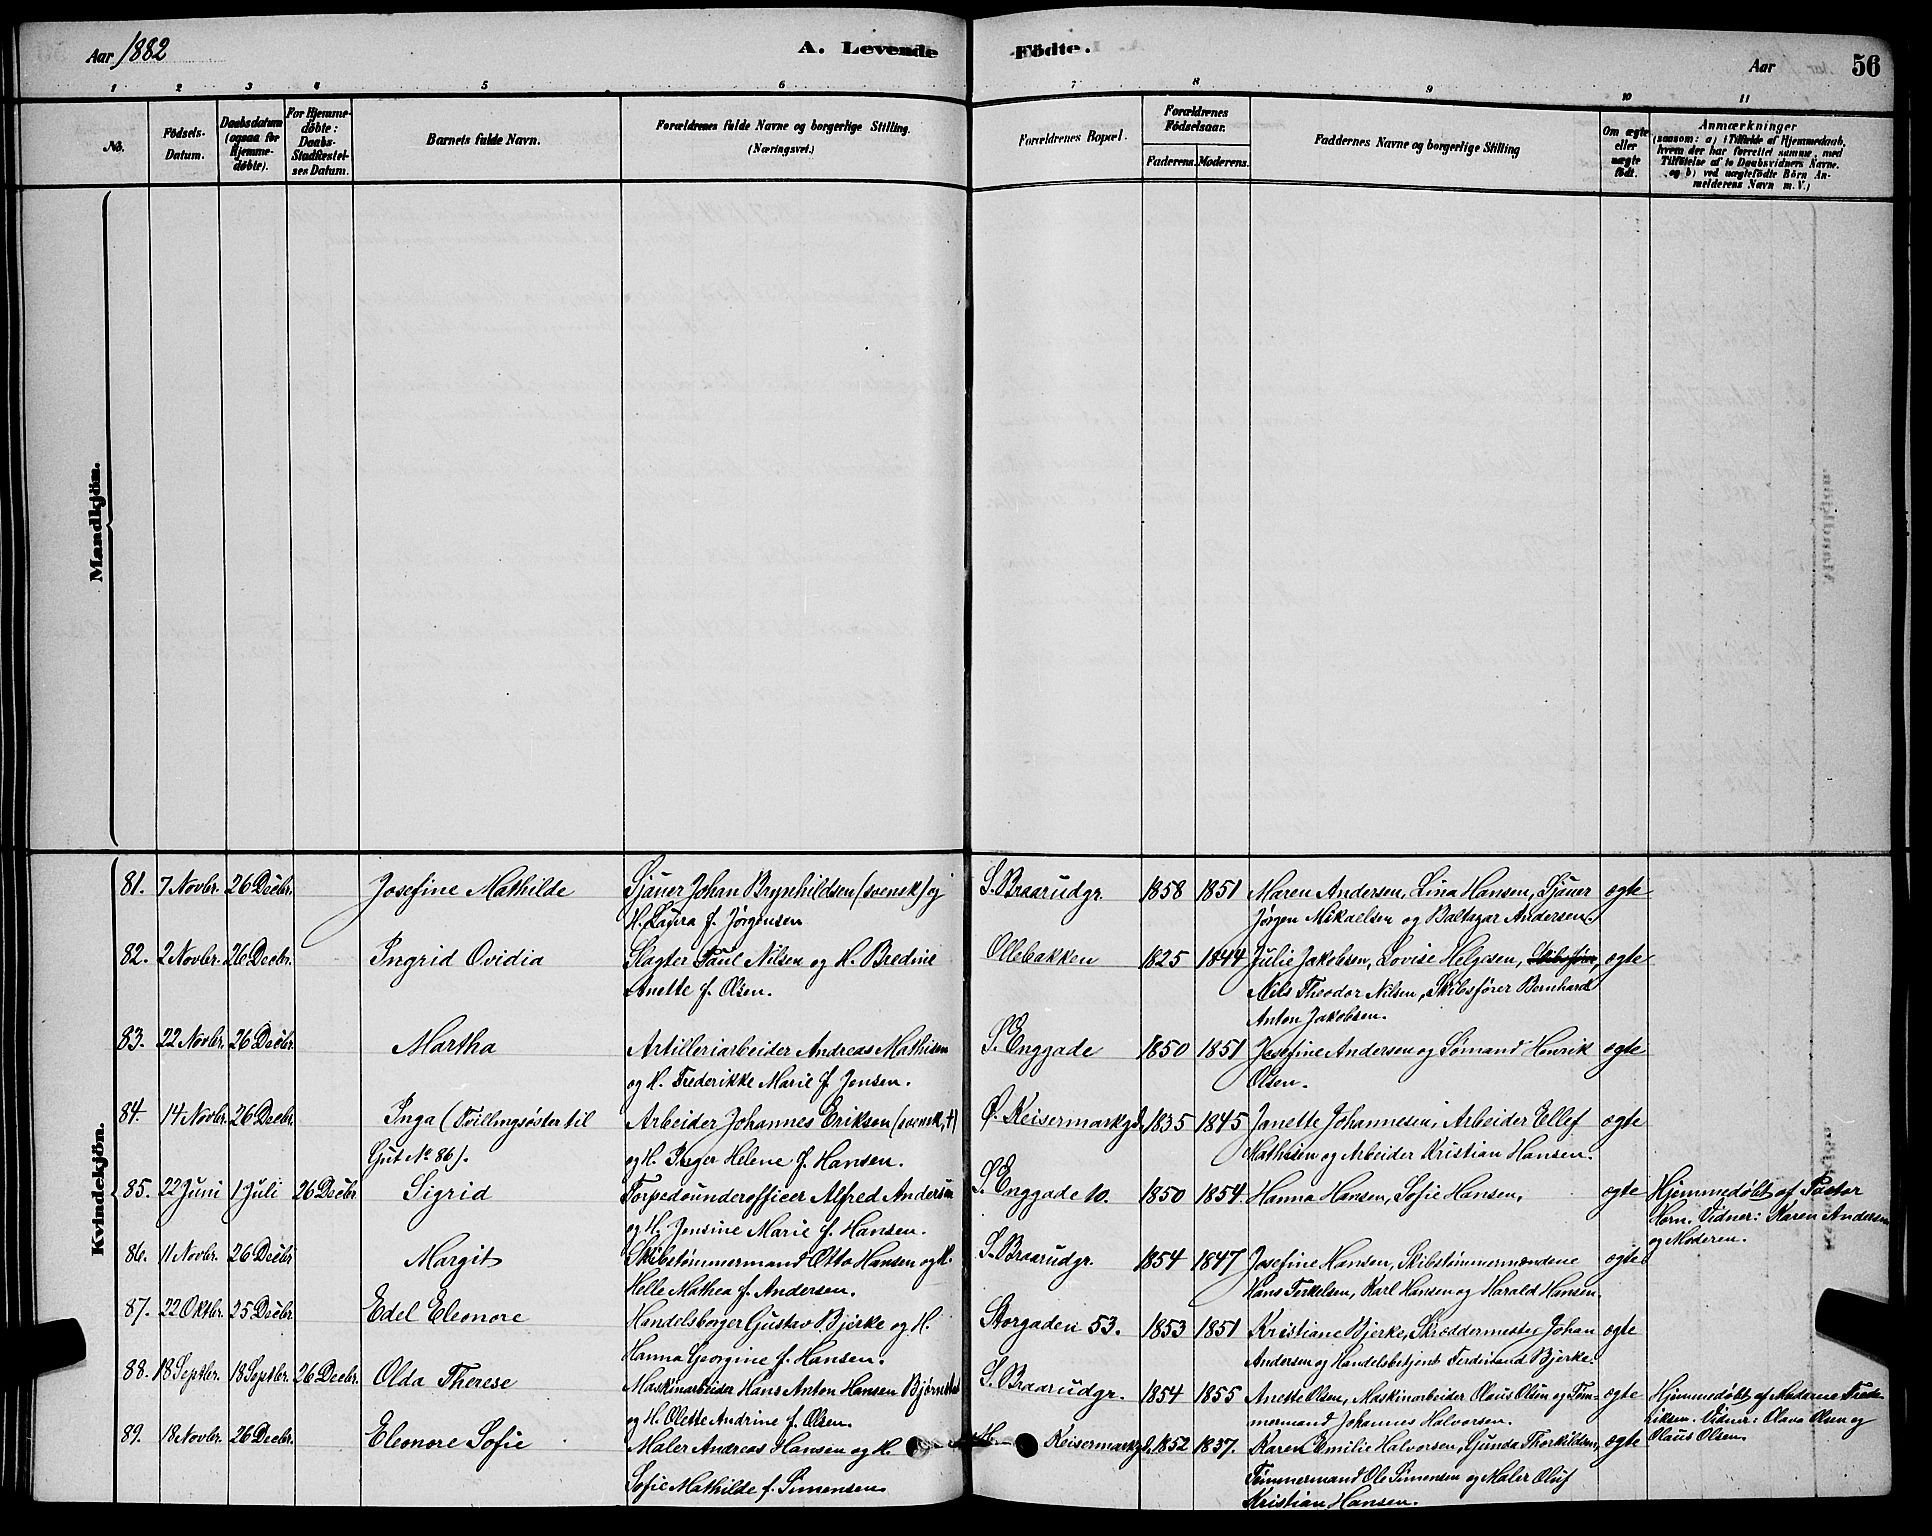 Aar 1882
A. Levende
Födte.
Aar
56
1 2 3 4 5 6 7 8 9 10 11
No.
Födsels-Datum.
Daabsdatum (ogsaa for Hjemmedöbte).
For Hjemmedöbte: Daabs-Stadfæstelses Datum.
Barnets fulde Navn.
Forældrenes fulde Navne og borgerlige Stilling.
(Næringsvei.)
Forældrenes Bopæl.
Forældrenes Födselsaar.
Faderens. Moderens.
Faddernes Navne og borgerlige Stilling
Om ægte eller uægte födt.
Anmærkninger
(saasom: a) i Tilfælde af Hjemmedaab, hvem der har forrettet samme, med Tilföielse af to Daabsvidners Navne. og b) ved uægtefödte Börn Anmelderens Navn m. V.)
Mandkjön.
Kvindekjön.
81. 7 Novbr. 26 Decbr. Josefine Mathilde Sjauer Johan Brynhildsen (svensk) og S. Braarudgr. 1858 1851 Maren Andersen, Lina Hansen, Sjauer ægte
H. Laura f. Jørgensen Jørgen Mikaelsen og Baltazar Andersen.
82. 2 Novbr. 26 Decbr. Ingrid Ovidia Slagter Paul Nilsen og H. Bredine Ollebakken 1825 1844 Julie Jakobsen, Lovise Helgesen, ægte
Anette f. Olsen. Nils Theodor Nilsen, Skibsfører Bernhard
Anton Jakobsen.
83. 22 Novbr. 26 Decbr. Martha Artilleriarbeider Andreas Mathisen S. Enggade 1850 1851 Josefine Andersen og Sømand Henrik ægte
og H. Frederikke Marie f. Jensen. Olsen.
84. 14 Novbr. 26 Decbr. Inga (Tvillingsøster til Arbeider Johannes Eriksen (svensk, †) Ø. Keisermarkgd. 1835 1845 Janette Johannesen, Arbeider Ellef ægte
Gut No 86). og H. Inger Helene f. Hansen. Mathisen og Arbeider Kristian Hansen.
85. 22 Juni 1 Juli 26 Decbr Sigrid Torpedounderofficer Alfred Andersen S. Enggade 10. 1850 1854. Hanna Hansen, Sofie Hansen, ægte Hjemmedøbt af Pastor
og H. Jensine Marie f. Hansen. Horn. Vidner: Karen Andersen
og Moderen.
86. 11 Novbr. 26 Decbr Margit Skibstømmermand Otto Hansen og H. S. Braarudgr. 1854 1847 Josefine Hansen, Skibstømmermændene ægte
Helle Mathea f. Andersen. Hans Terkelsen, Karl Hansen og Harald Hansen.
87. 22 Oktbr. 25 Decbr Edel Eleonore Handelsborger Gustav Bjerke og H. Storgaden 53. 1853 1851 Kristiane Bjerke, Skræddermester Johan ægte
Hanna Georgine f. Hansen. Andersen og Handelsbetjent Ferdinand Bjerke.
88. 18 Septbr. 18 Septbr. 26 Decbr. Olda Therese Maskinarbeider Hans Anton Hansen Bjørnstad S. Braarudgr. 1854 1855 Anette Olsen, Maskinarbeider Olaus Olsen og Tøm- ægte Hjemmedøbt af Madame Fred-
og H. Olette Andrine f. Olsen. mermand Johannes Halvorsen. riksen. Vidner: Olava Olsen og
Olaus Olsen.
89. 18 Novbr. 26 Decbr. Eleonore Sofie Maler Andreas Hansen og H. Keisermarkgd. 1852 1857. Karen Emilie Halvorsen, Gunda Thorkildsen, ægte
Sofie Mathilde f. Simensen Tømmermand Ole Simensen og Maler Oluf
Kristian Hansen.